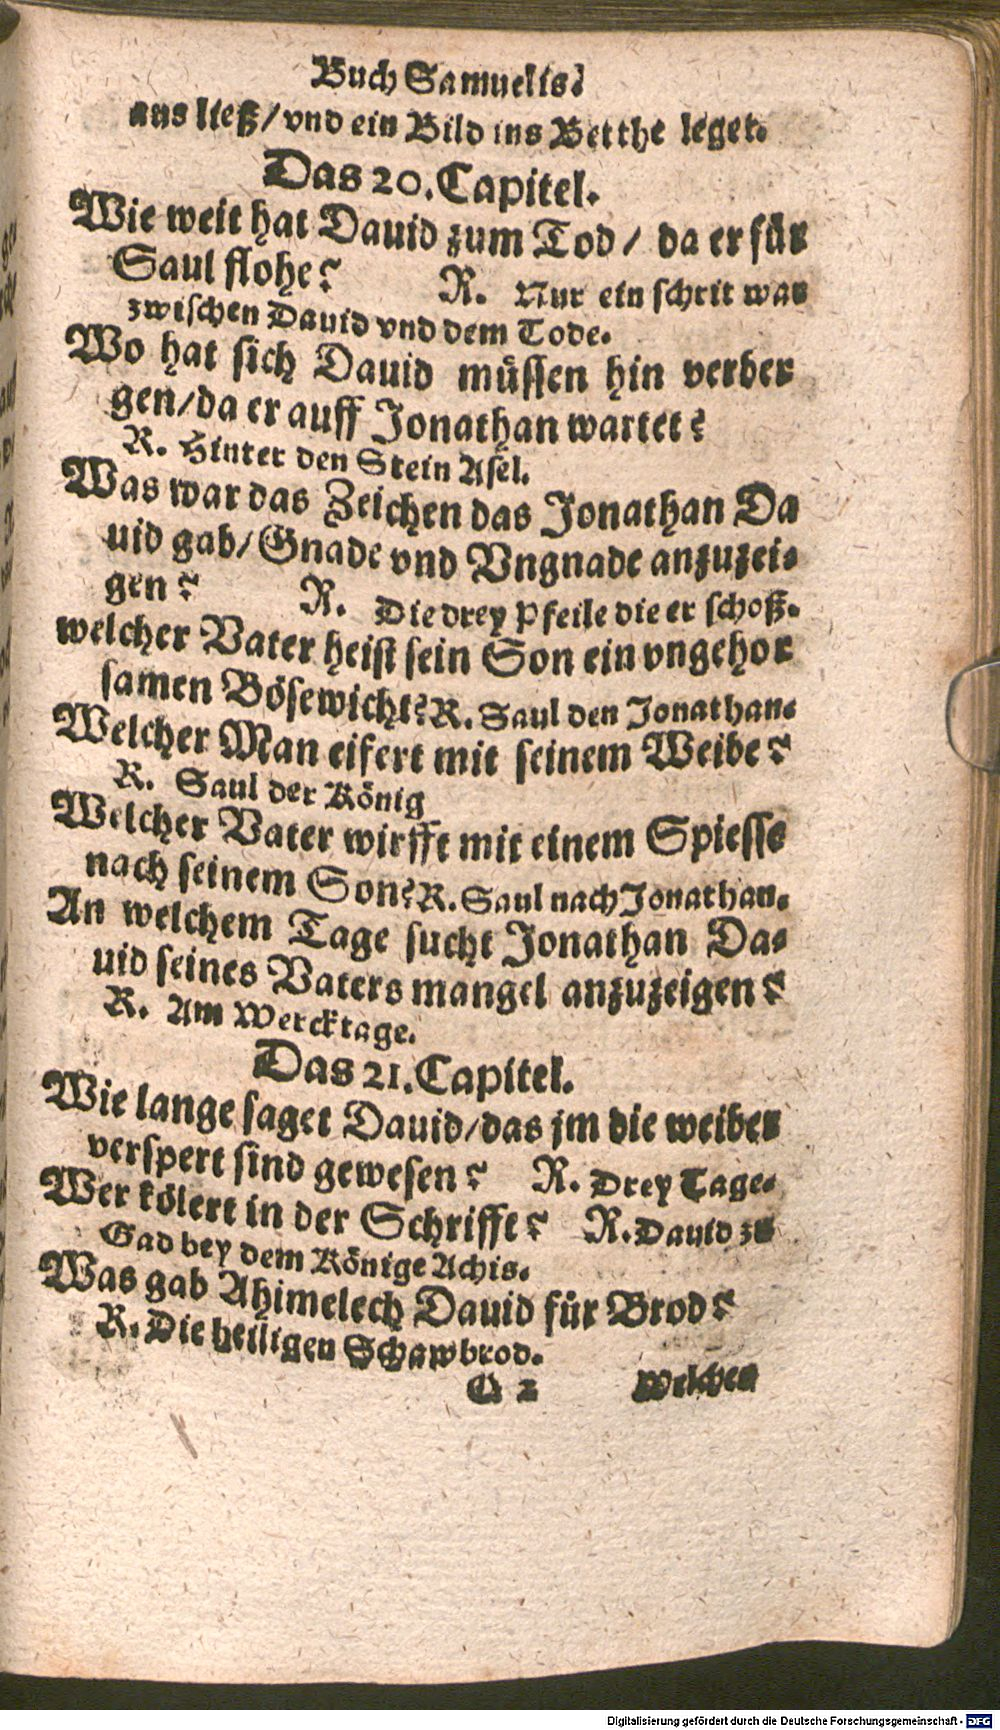 Buch Samuelis.
aus ließ/vnd ein Bild ins Betthe leget.
Das 20. Capitel.
Wie weit hat Dauid zum Tod/ da er für
Saul flohe? R. Nur ein schrit war
zwischen Dauid vnd dem Tode.
Wo hat sich Dauid müssen hin verber
gen/da er auff Jonathan wartet?
R. Hinter den Stein Asel.
Was war das Zeichen das Jonathan Da
uid gab/Gnade vnd Vngnade anzuzei-
gen? R. Die drey Pfeile die er schoß.
welcher Vater heist sein Son ein vngehor
samen Bösewicht? R. Saul den Jonathan.
Welcher Man eifert mit seinem Weibe?
R. Saul der König
Welcher Vater wirfft mit einem Spiesse
nach seinem Son? R. Saul nach Jonathan.
An welchem Tage sucht Jonathan Da-
uid seines Vaters mangel anzuzeigen?
R. Am Wercktage.
Das 21. Capitel.
Wie lange saget Dauid/das jm die weiber
verspert sind gewesen? R. Drey Tage.
Wer kölert in der Schrifft? R. Dauid zu
Gad bey dem Könige Achis.
Was gab Ahimelech Dauid für Brod?
R. Die heiligen Schawbrod.
G 2 Welchen
Digitalisierung gefördert durch die Deutsche Forschungsgemeinschaft - DFG